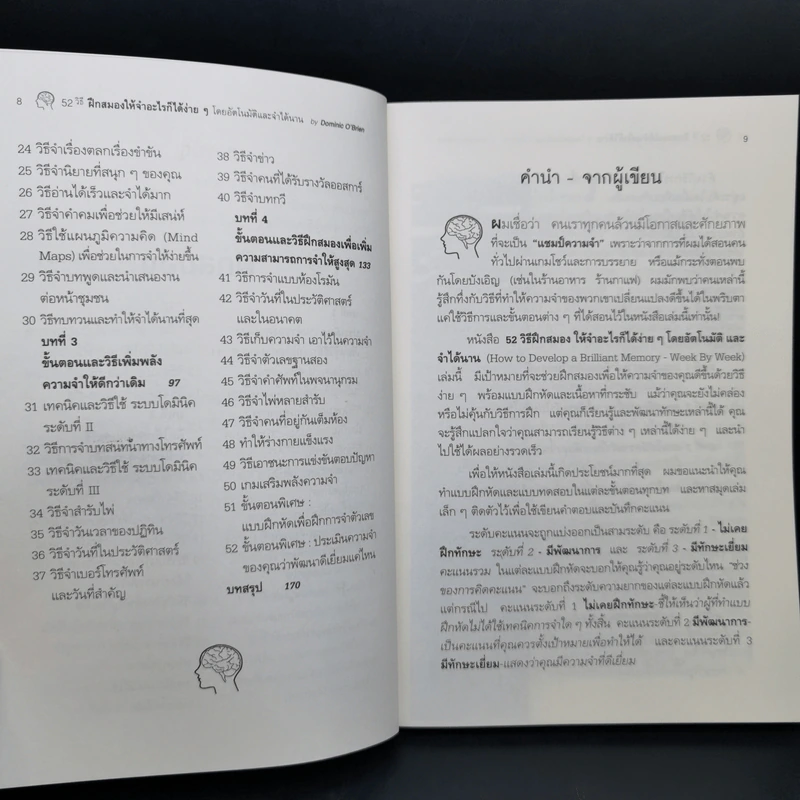 8 52 วิธี ฝึกสมองให้จำอะไรก็ได้ง่าย ๆ โดยอัตโนมัติและจำได้นาน by Dominic O'Brien
24 วิธีจำเรื่องตลกเรื่องขำขัน
25 วิธีจำนิยายที่สนุก ๆ ของคุณ
26 วิธีอ่านได้เร็วและจำได้มาก
27 วิธีจำคำคมเพื่อช่วยให้มีเสน่ห์
28 วิธีใช้แผนภูมิความคิด (Mind
Maps) เพื่อช่วยในการจำให้ง่ายขึ้น
29 วิธีจำบทพูดและนำเสนองาน
ต่อหน้าชุมชน
30 วิธีทบทวนและทำให้จำได้นานที่สุด
บทที่ 3
ขั้นตอนและวิธีเพิ่มพลัง
ความจำให้ดีกว่าเดิม 97
31 เทคนิคและวิธีใช้ ระบบโดมินิค
ระดับที่ II
32 วิธีการจำบทสนทนาทางโทรศัพท์
33 เทคนิคและวิธีใช้ ระบบโดมินิค
ระดับที่ III
34 วิธีจำสำรับไพ่
35 วิธีจำวันเวลาของปฏิทิน
36 วิธีจำวันที่ในประวัติศาสตร์
37 วิธีจำเบอร์โทรศัพท์
และวันที่สำคัญ
38 วิธีจำข่าว
39 วิธีจำคนที่ได้รับรางวัลออสการ์
40 วิธีจำบทกวี
บทที่ 4
ขั้นตอนและวิธีฝึกสมองเพื่อเพิ่ม
ความสามารถการจำให้สูงสุด 133
41 วิธีการจำแบบห้องโรมัน
42 วิธีจำวันที่ในประวัติศาสตร์
และในอนาคต
43 วิธีเก็บความจำ เอาไว้ในความจำ
44 วิธีจำตัวเลขฐานสอง
45 วิธีจำคำศัพท์ในพจนานุกรม
46 วิธีจำไพ่หลายสำรับ
47 วิธีจำคนที่อยู่กันเต็มห้อง
48 ทำให้ร่างกายแข็งแรง
49 วิธีเอาชนะการแข่งขันตอบปัญหา
50 เกมเสริมพลังความจำ
51 ขั้นตอนพิเศษ :
แบบฝึกหัดเพื่อฝึกการจำตัวเลข
52 ขั้นตอนพิเศษ : ประเมินความจำ
ของคุณว่าพัฒนาดีเยี่ยมแค่ไหน
บทสรุป 170
9
คำนำ - จากผู้เขียน
ผมเชื่อว่า คนเราทุกคนล้วนมีโอกาสและศักยภาพ
ที่จะเป็น "แชมป์ความจำ" เพราะว่าจากการที่ผมได้สอนคน
ทั่วไปผ่านเกมโชว์และการบรรยาย หรือแม้กระทั่งตอนพบ
กันโดยบังเอิญ (เช่นในร้านอาหาร ร้านกาแฟ) ผมมักพบว่าคนเหล่านี้
รู้สึกทึ่งกับวิธีที่ทำให้ความจำของพวกเขาเปลี่ยนแปลงดีขึ้นได้ในพริบตา
แค่ใช้วิธีการและขั้นตอนต่าง ๆ ที่ได้สอนไว้ในหนังสือเล่มนี้เท่านั้น!
หนังสือ 52 วิธีฝึกสมอง ให้จำอะไรก็ได้ง่าย ๆ โดยอัตโนมัติ และ
จำได้นาน (How to Develop a Brilliant Memory - Week By Week)
เล่มนี้ มีเป้าหมายที่จะช่วยฝึกสมองเพื่อให้ความจำของคุณดีขึ้นด้วยวิธี
ง่าย ๆ พร้อมแบบฝึกหัดและเนื้อหาที่กระชับ แม้ว่าคุณจะยังไม่คล่อง
หรือไม่คุ้นกับวิธีการฝึก แต่คุณก็เรียนรู้และพัฒนาทักษะเหล่านี้ได้ คุณ
จะรู้สึกแปลกใจว่าคุณสามารถเรียนรู้วิธีต่าง ๆ เหล่านี้ได้ง่าย ๆ และนำ
ไปใช้ได้ผลอย่างรวดเร็ว
เพื่อให้หนังสือเล่มนี้เกิดประโยชน์มากที่สุด ผมขอแนะนำให้คุณ
ทำแบบฝึกหัดและแบบทดสอบในแต่ละขั้นตอนทุกบท และหาสมุดเล่ม
เล็ก ๆ ติดตัวไว้เพื่อใช้เขียนคำตอบและบันทึกคะแนน
ระดับคะแนนจะถูกแบ่งออกเป็นสามระดับ คือ ระดับที่ 1 - ไม่เคย
ฝึกทักษะ ระดับที่ 2 - มีพัฒนาการ และ ระดับที่ 3 - มีทักษะเยี่ยม
คะแนนรวม ในแต่ละแบบฝึกหัดจะบอกให้คุณรู้ว่าคุณอยู่ระดับไหน "ช่วง
ของการคิดคะแนน" จะบอกถึงระดับความยากของแต่ละแบบฝึกหัดแล้ว
แต่กรณีไป คะแนนระดับที่ 1 ไม่เคยฝึกทักษะ-ชี้ให้เห็นว่าผู้ที่ทำแบบ
ฝึกหัดไม่ได้ใช้เทคนิคการจำใด ๆ ทั้งสิ้น คะแนนระดับที่ 2 มีพัฒนาการ-
เป็นคะแนนที่คุณควรตั้งเป้าหมายเพื่อทำให้ได้ และคะแนนระดับที่ 3
มีทักษะเยี่ยม-แสดงว่าคุณมีความจำที่ดีเยี่ยม